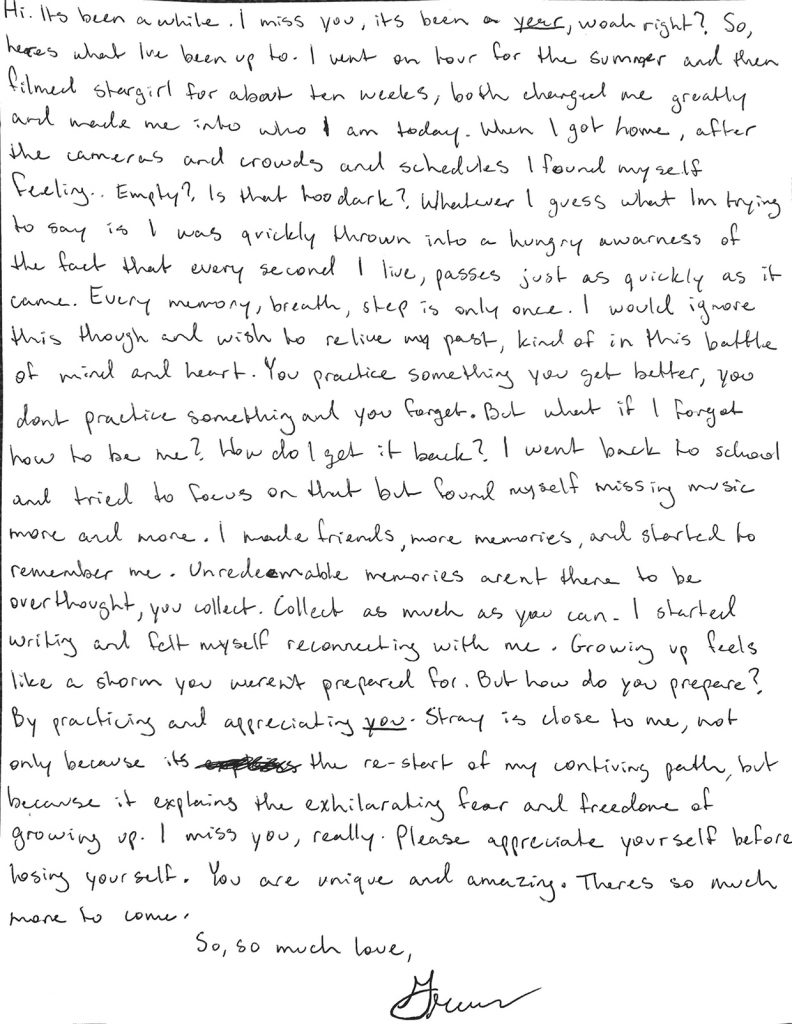 Hi. Its been a while. I miss you, its been a year, woah right? So,
heres what Ive been up to. I went on tour for the summer and then
filmed stargirl for about ten weeks, both changed me greatly
and made me into who I am today. When I got home, after
the cameras and crowds and schedules I found myself
feeling.. Empty? Is that too dark? Whatever I guess what Im trying
to say is I was quickly thrown into a hungry awarness of
the fact that every second I live, passes just as quickly as it
came. Every memory, breath, step is only once. I would ignore
this though and wish to relive my past, kind of in this battle
of mind and heart. You practice something you get better, you
dont practice something and you forget. But what if I forgot
how to be me? How do I get it back? I went back to school
and tried to focus on that but found myself missing music
more and more. I made friends, more memories, and started to
remember me. Unredeemable memories arent there to be
overthought, you collect. Collect as much as you can. I started
writing and felt myself reconnecting with me. Growing up feels
like a storm you weren't prepared for. But how do you prepare?
By practicing and appreciating you. Stray is close to me, not
only because its the re-start of my contiving path, but
because it explains the exhilarating fear and freedome of
growing up. I miss you, really. Please appreciate yourself before
losing yourself. You are unique and amazing. Theres so much
more to come.
So, so much love,